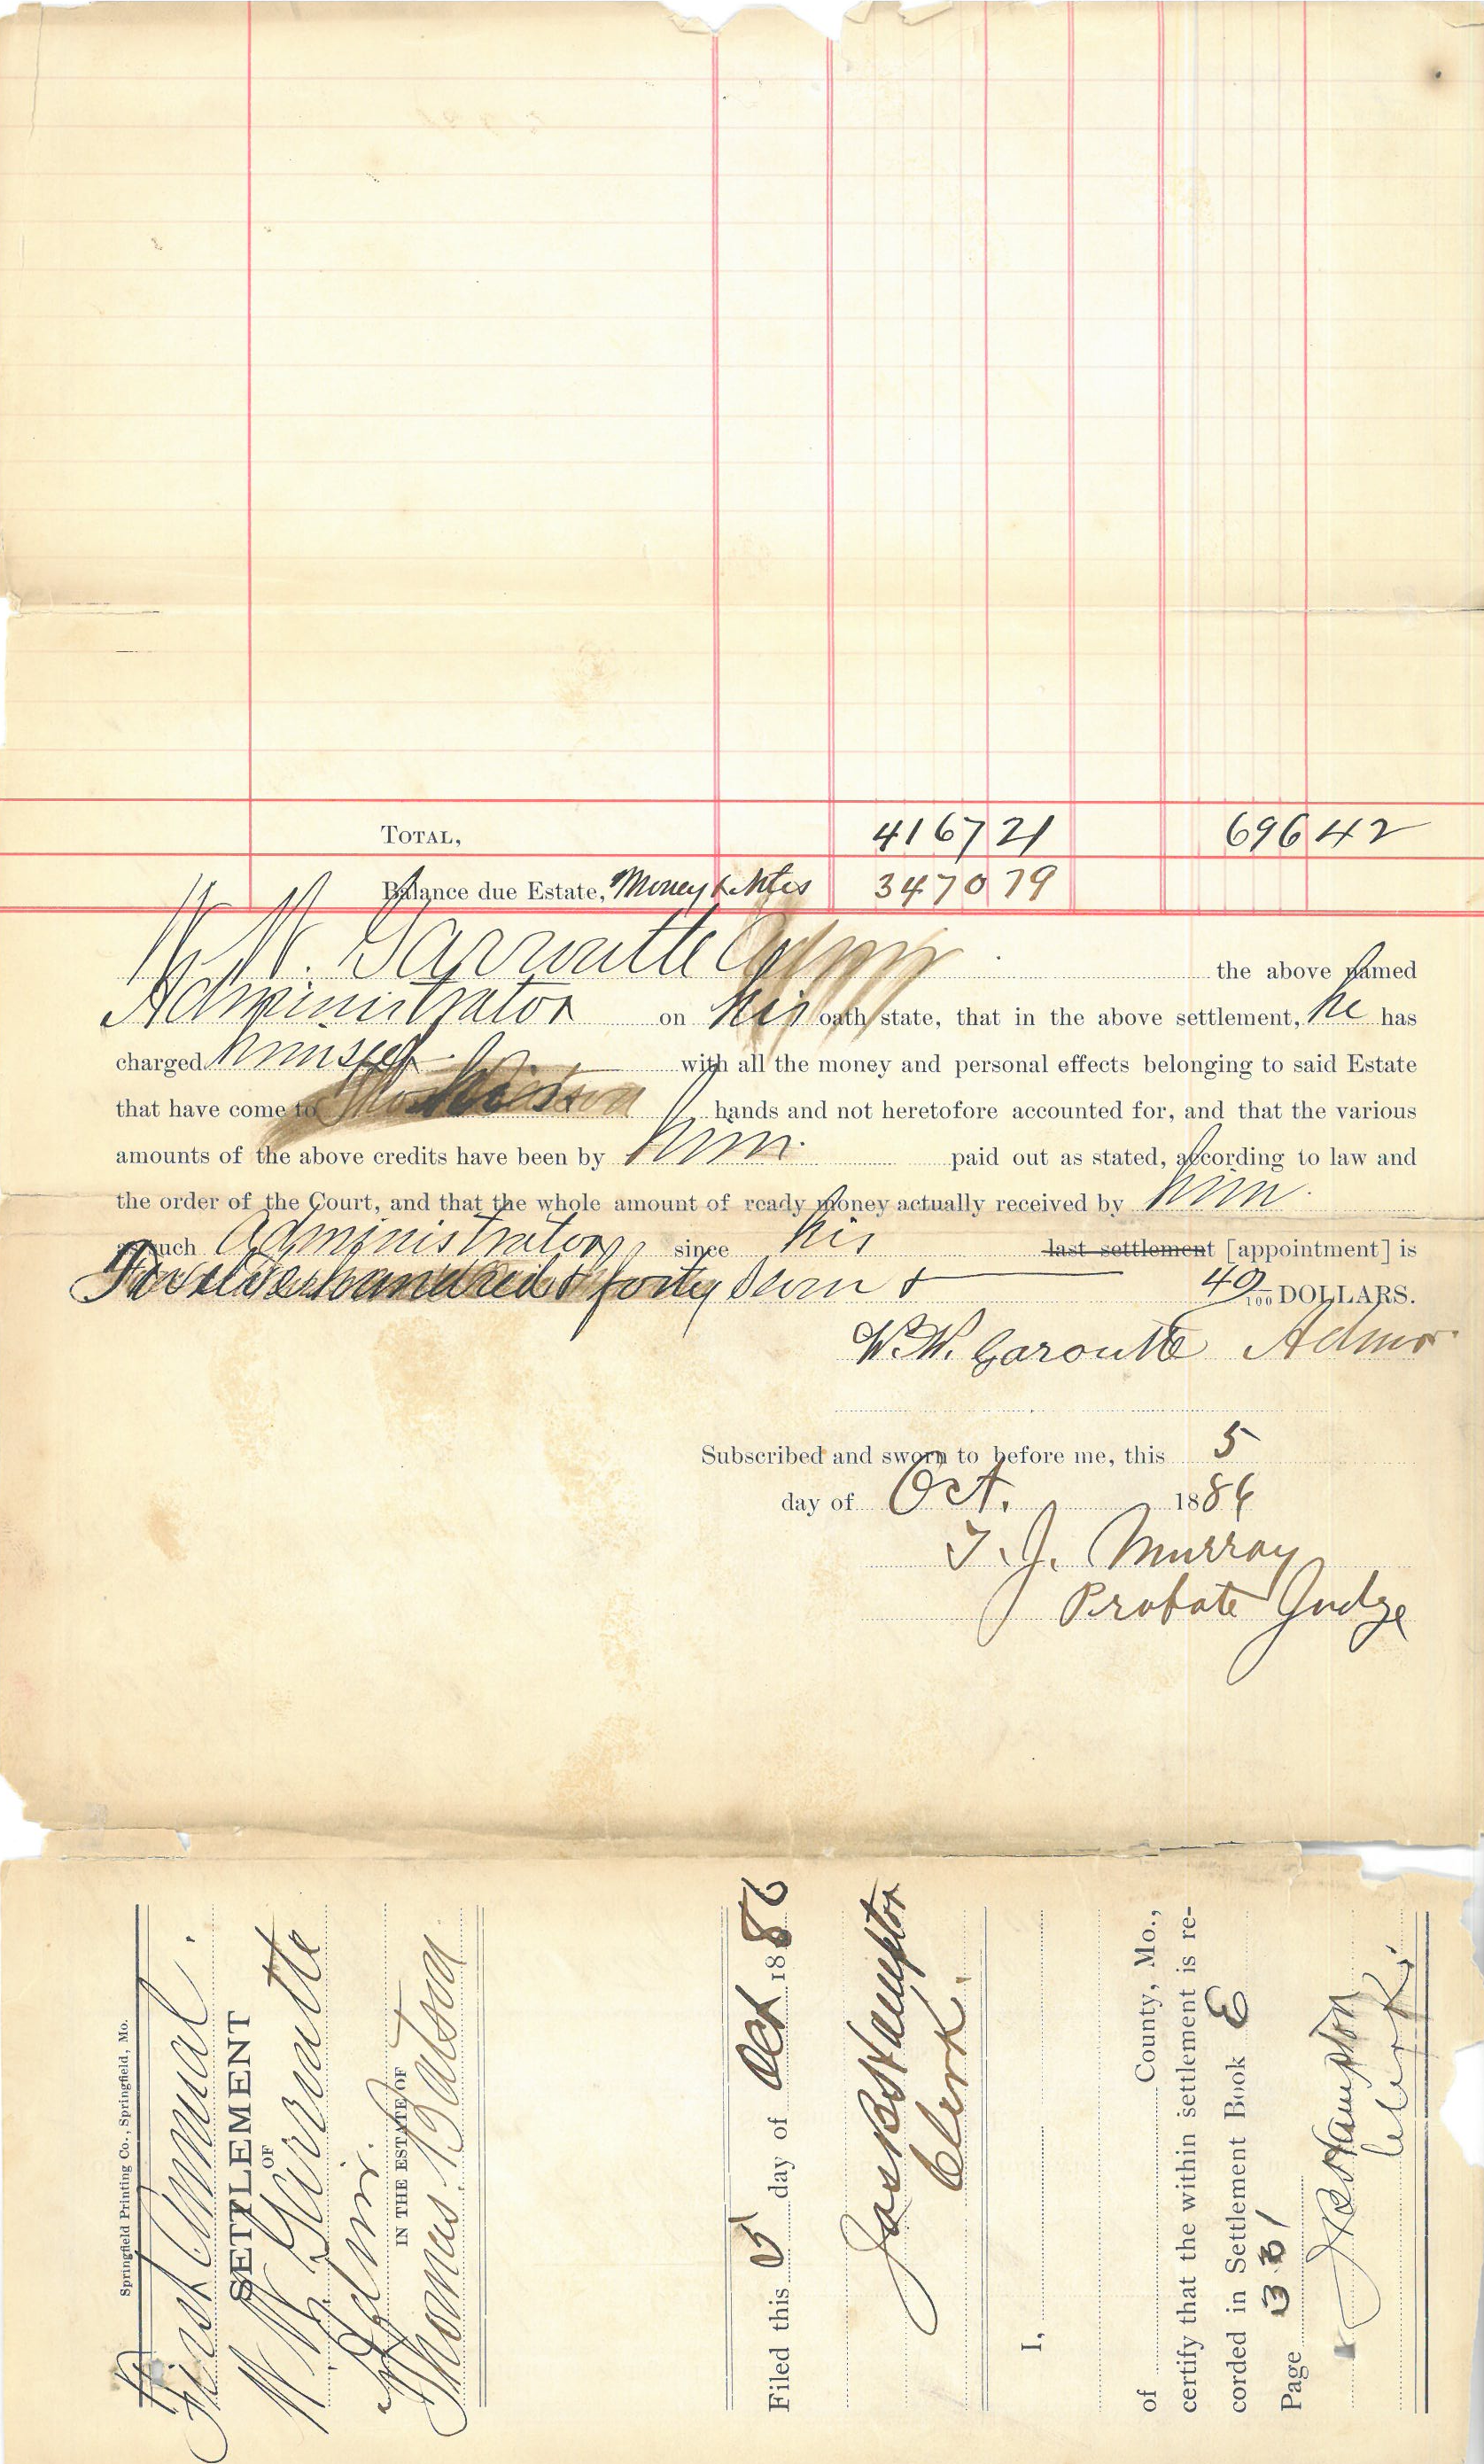 TOTAL, 4167 21 696 42
Balance due Estate, Money & Notes 3470 79
W. W. Garroutte Admr the above named
Administrator on his oath state, that in the above settlement, he has
charged himself with all the money and personal effects belonging to said Estate
that have come to his hands and not heretofore accounted for, and that the various
amounts of the above credits have been by him paid out as stated, according to law and
the order of the Court, and that the whole amount of ready money actually received by him
as such Administrator, since his last settlement [appointment] is
hundred & forty & 40/100 DOLLARS.
W. W. Garoutte Admor
Subscribed and sworn to before me, this 5
day of Oct. 1886
T. J. Murray
Probate Judge
Springfield Printing Co., Springfield, Mo.
First Annual
SETTLEMENT
OF
W W Garroutte
Admr.
IN THE ESTATE OF
Thomas Batson
Filed this 5 day of Oct 1886
Jas B Hampton
Clerk.
I,
of County, Mo.,
certify that the within settlement is re-
corded in Settlement Book E
Page 331
J B Hampton
Clerk.